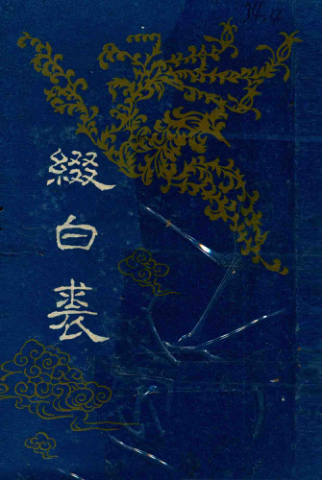 綴白裘